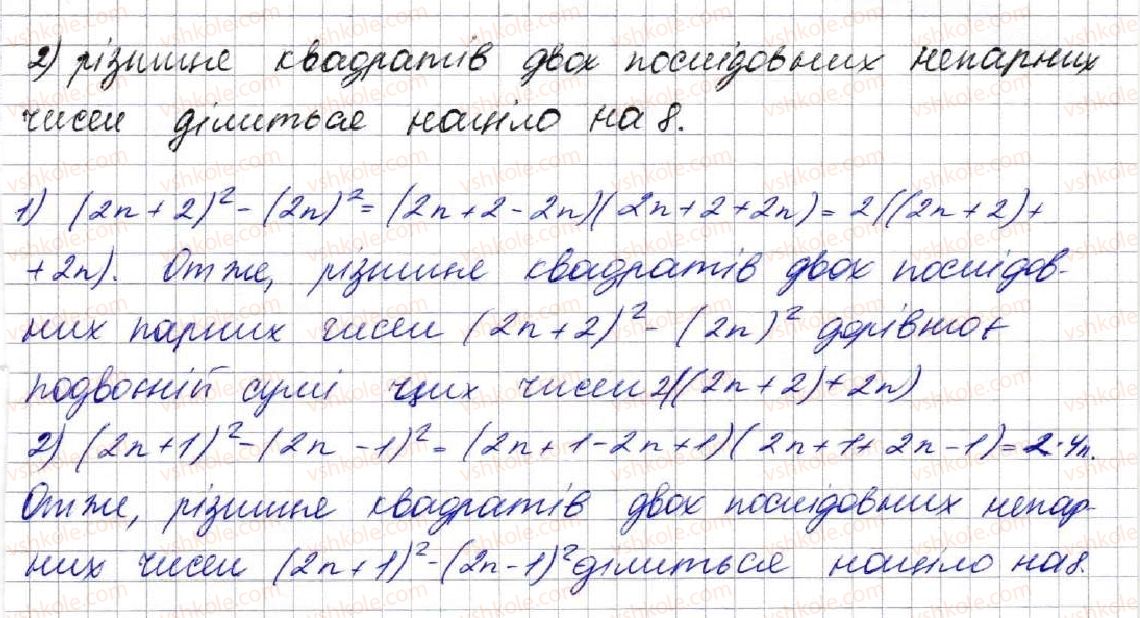 2) різниця квадратів двох послідовних непарних
чисел ділиться націло на 8.
1) (2n + 2)² - (2n)² = (2n + 2 - 2n)(2n + 2 + 2n) = 2((2n + 2) +
+ 2n). Отже, різниця квадратів двох послідов-
них парних чисел (2n + 2)² - (2n)² дорівнює
подвоєній сумі цих чисел 2((2n + 2) + 2n)
2) (2n + 1)² - (2n - 1)² = (2n + 1 - 2n + 1)(2n + 1 + 2n - 1) = 2·4n.
Отже, різниця квадратів двох послідовних непар-
них чисел (2n + 1)² - (2n - 1)² ділиться націло на 8.